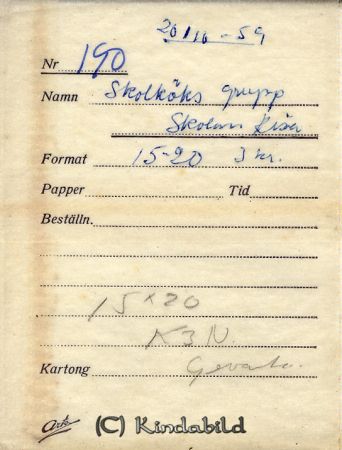 20/10 - 59
Nr 190
Namn Skolköks grupp
Skolan Kisa
Format 15-20 3 kr.
Papper Tid
Beställn.
15 x 20
K3N.
Kartong
(C) Kindabild